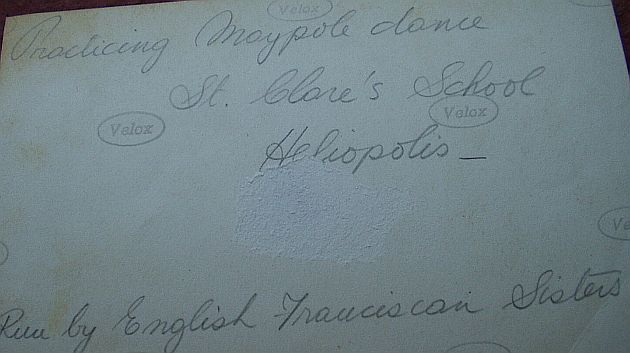 Velox
Practicing Maypole dance
St. Clare's School
Velox
Velox
Heliopolis –
Velox
Run by English Franciscan Sisters